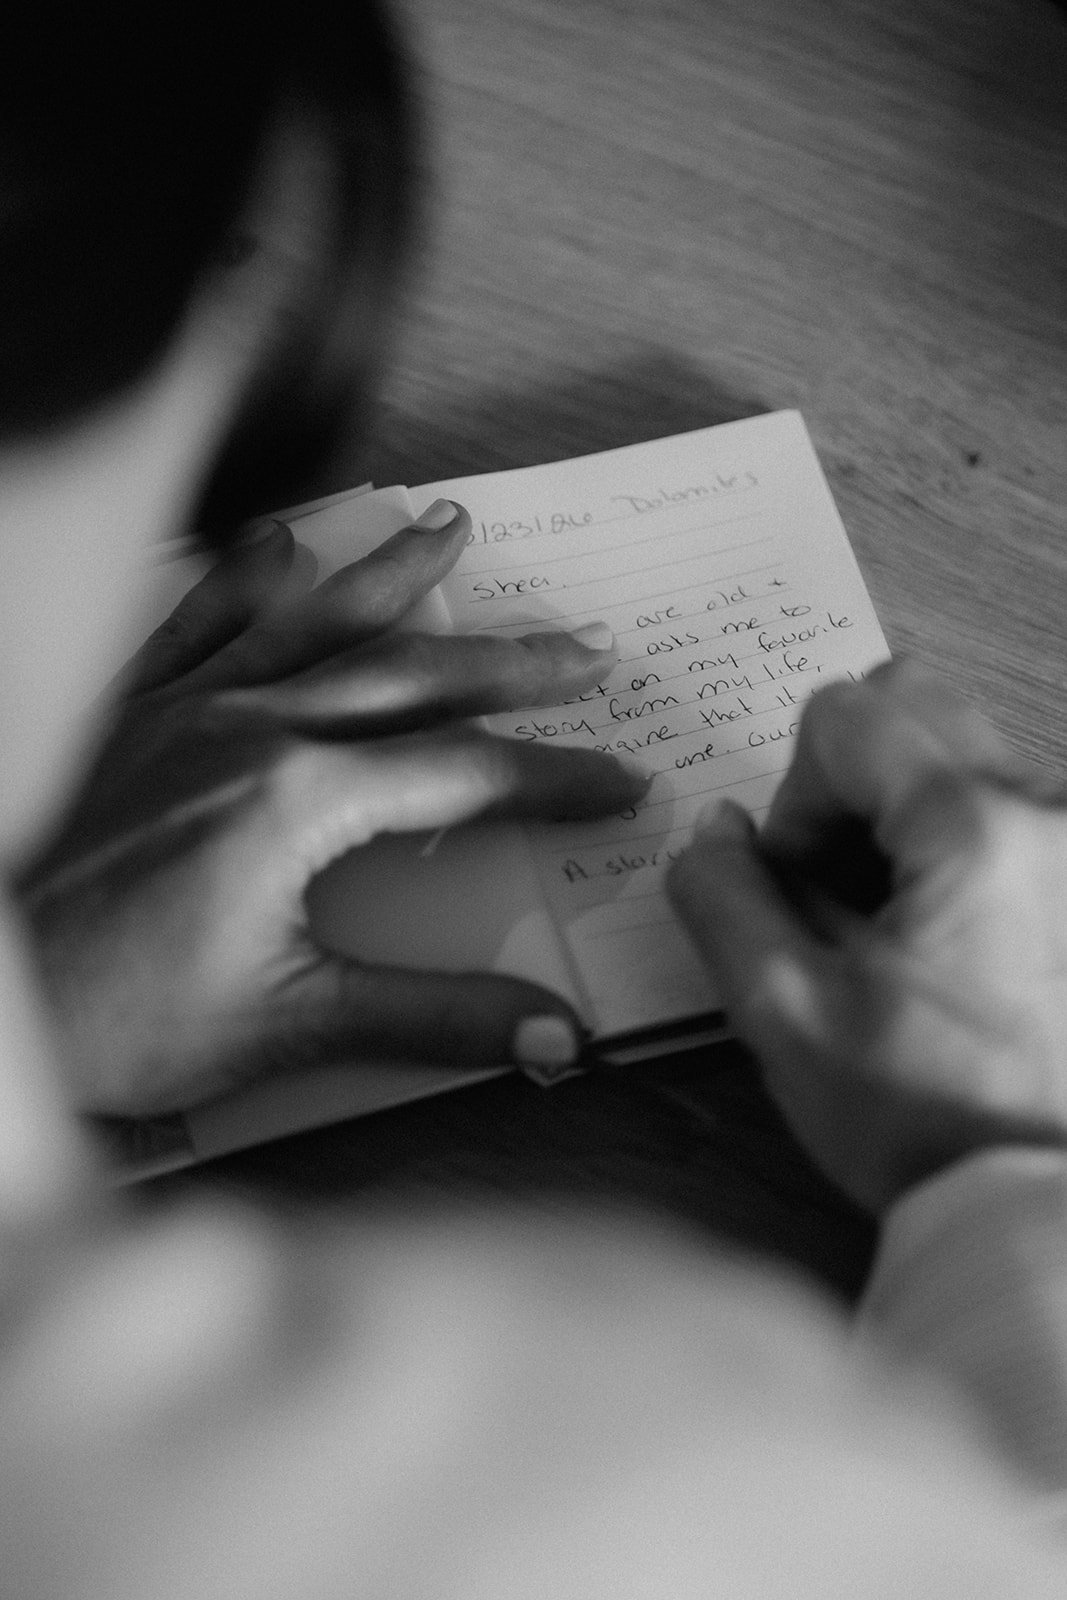 /23/26 Dolomites
Shea.
are old +
asks me to
on my favorite
story from my life,
that it
one. Our
A story